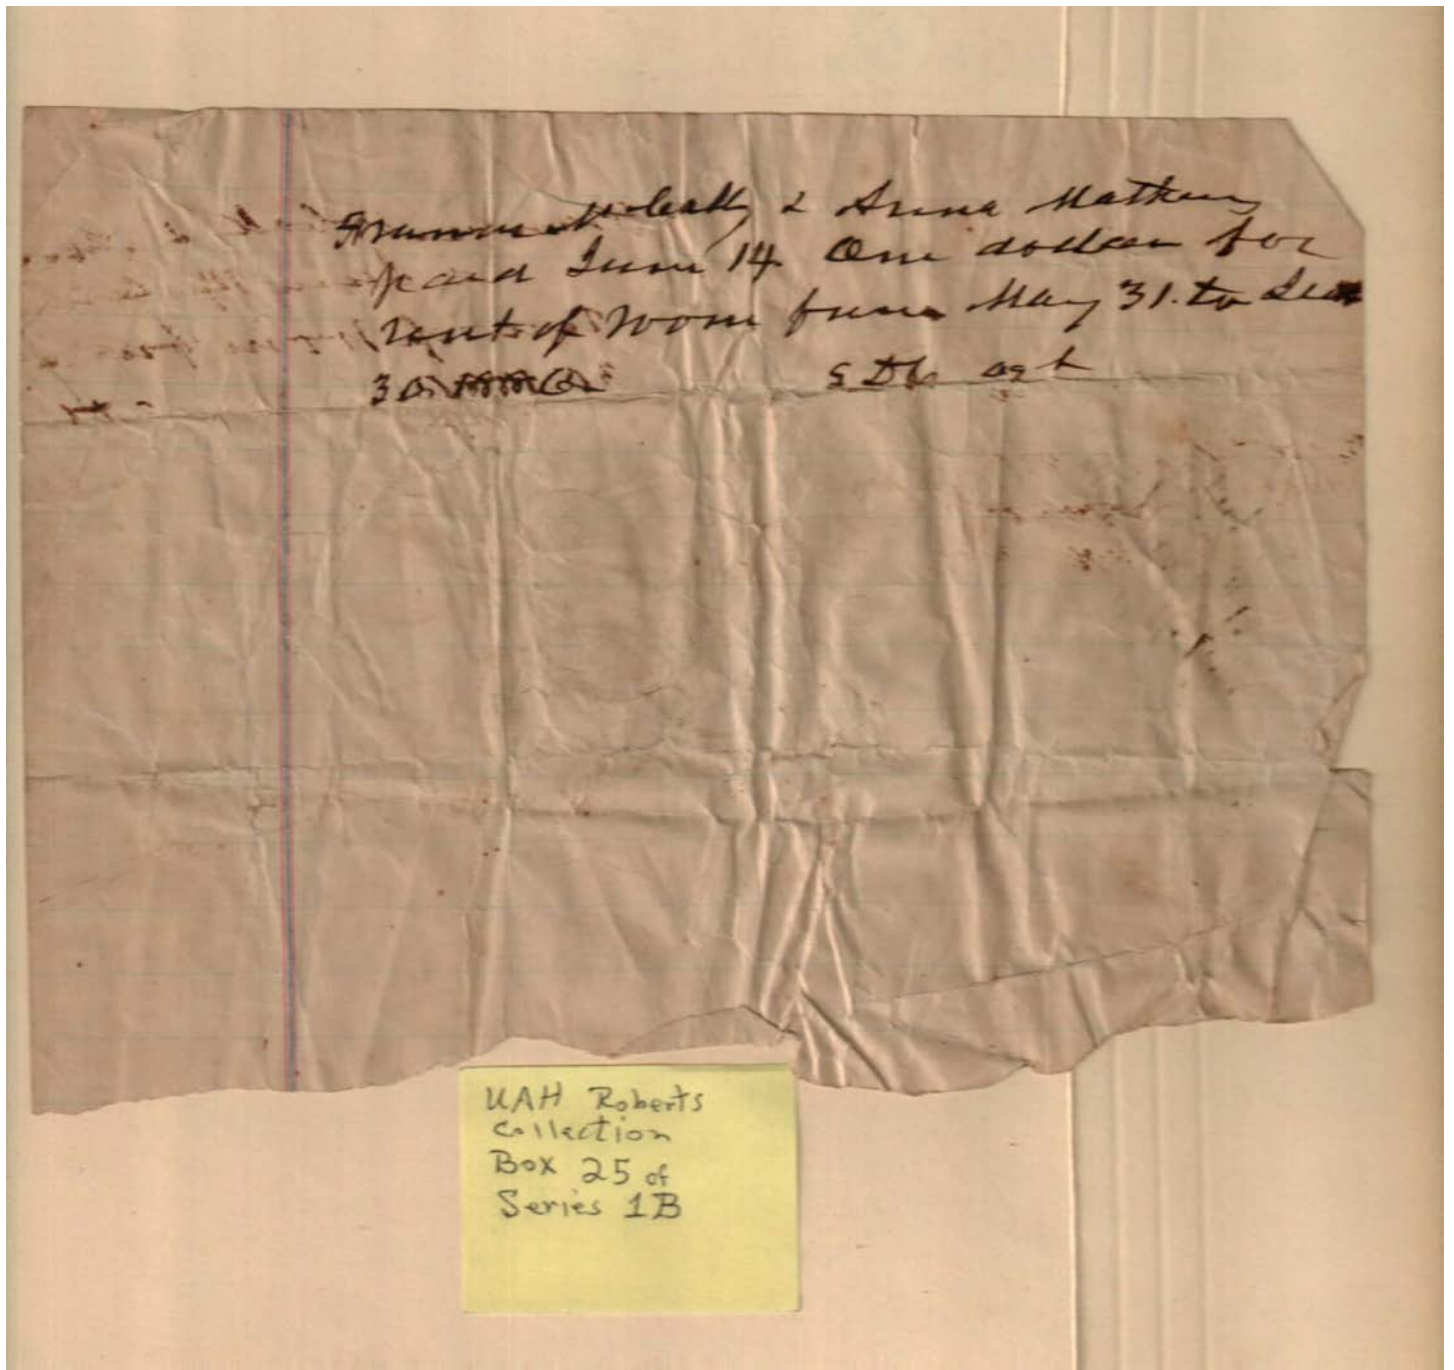 & Anna Mathews
paid June 14 One dollar for
rent of room from May 31. to
30 S D C agt
UAH Roberts
Collection
Box 25 of
Series 1B